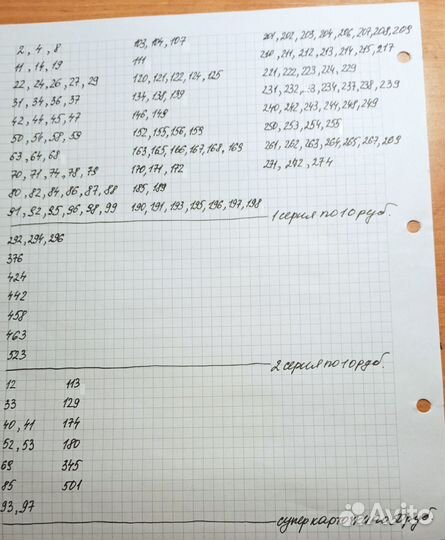 2, 4, 8
11, 14, 19
22, 24, 26, 27, 29
31, 34, 36, 37
42, 44, 45, 47
50, 54, 58, 59
63, 64, 68
70, 71, 74, 78, 79
80, 82, 84, 86, 87, 88
91, 92, 95, 96, 98, 99
103, 104, 107
111
120, 121, 122, 124, 125
134, 138, 139
146, 149
152, 155, 156, 159
163, 165, 166, 167, 168, 169
170, 171, 172
185, 189
190, 191, 193, 195, 196, 197, 198
201, 202, 203, 204, 206, 207, 208, 209
210, 211, 212, 213, 214, 215, 217
221, 222, 223, 224, 229
231, 232, 234, 237, 238, 239
240, 242, 243, 244, 248, 249
250, 253, 254, 255
261, 262, 263, 264, 265, 267, 269
271, 272, 274
1 серия по 10 руб.
292, 294, 296
376
424
442
458
463
523
2 серия по 10 руб.
12
33
40, 41
52, 53
69
85
93, 97
113
129
174
180
345
501
супер карточки по руб.
Avito